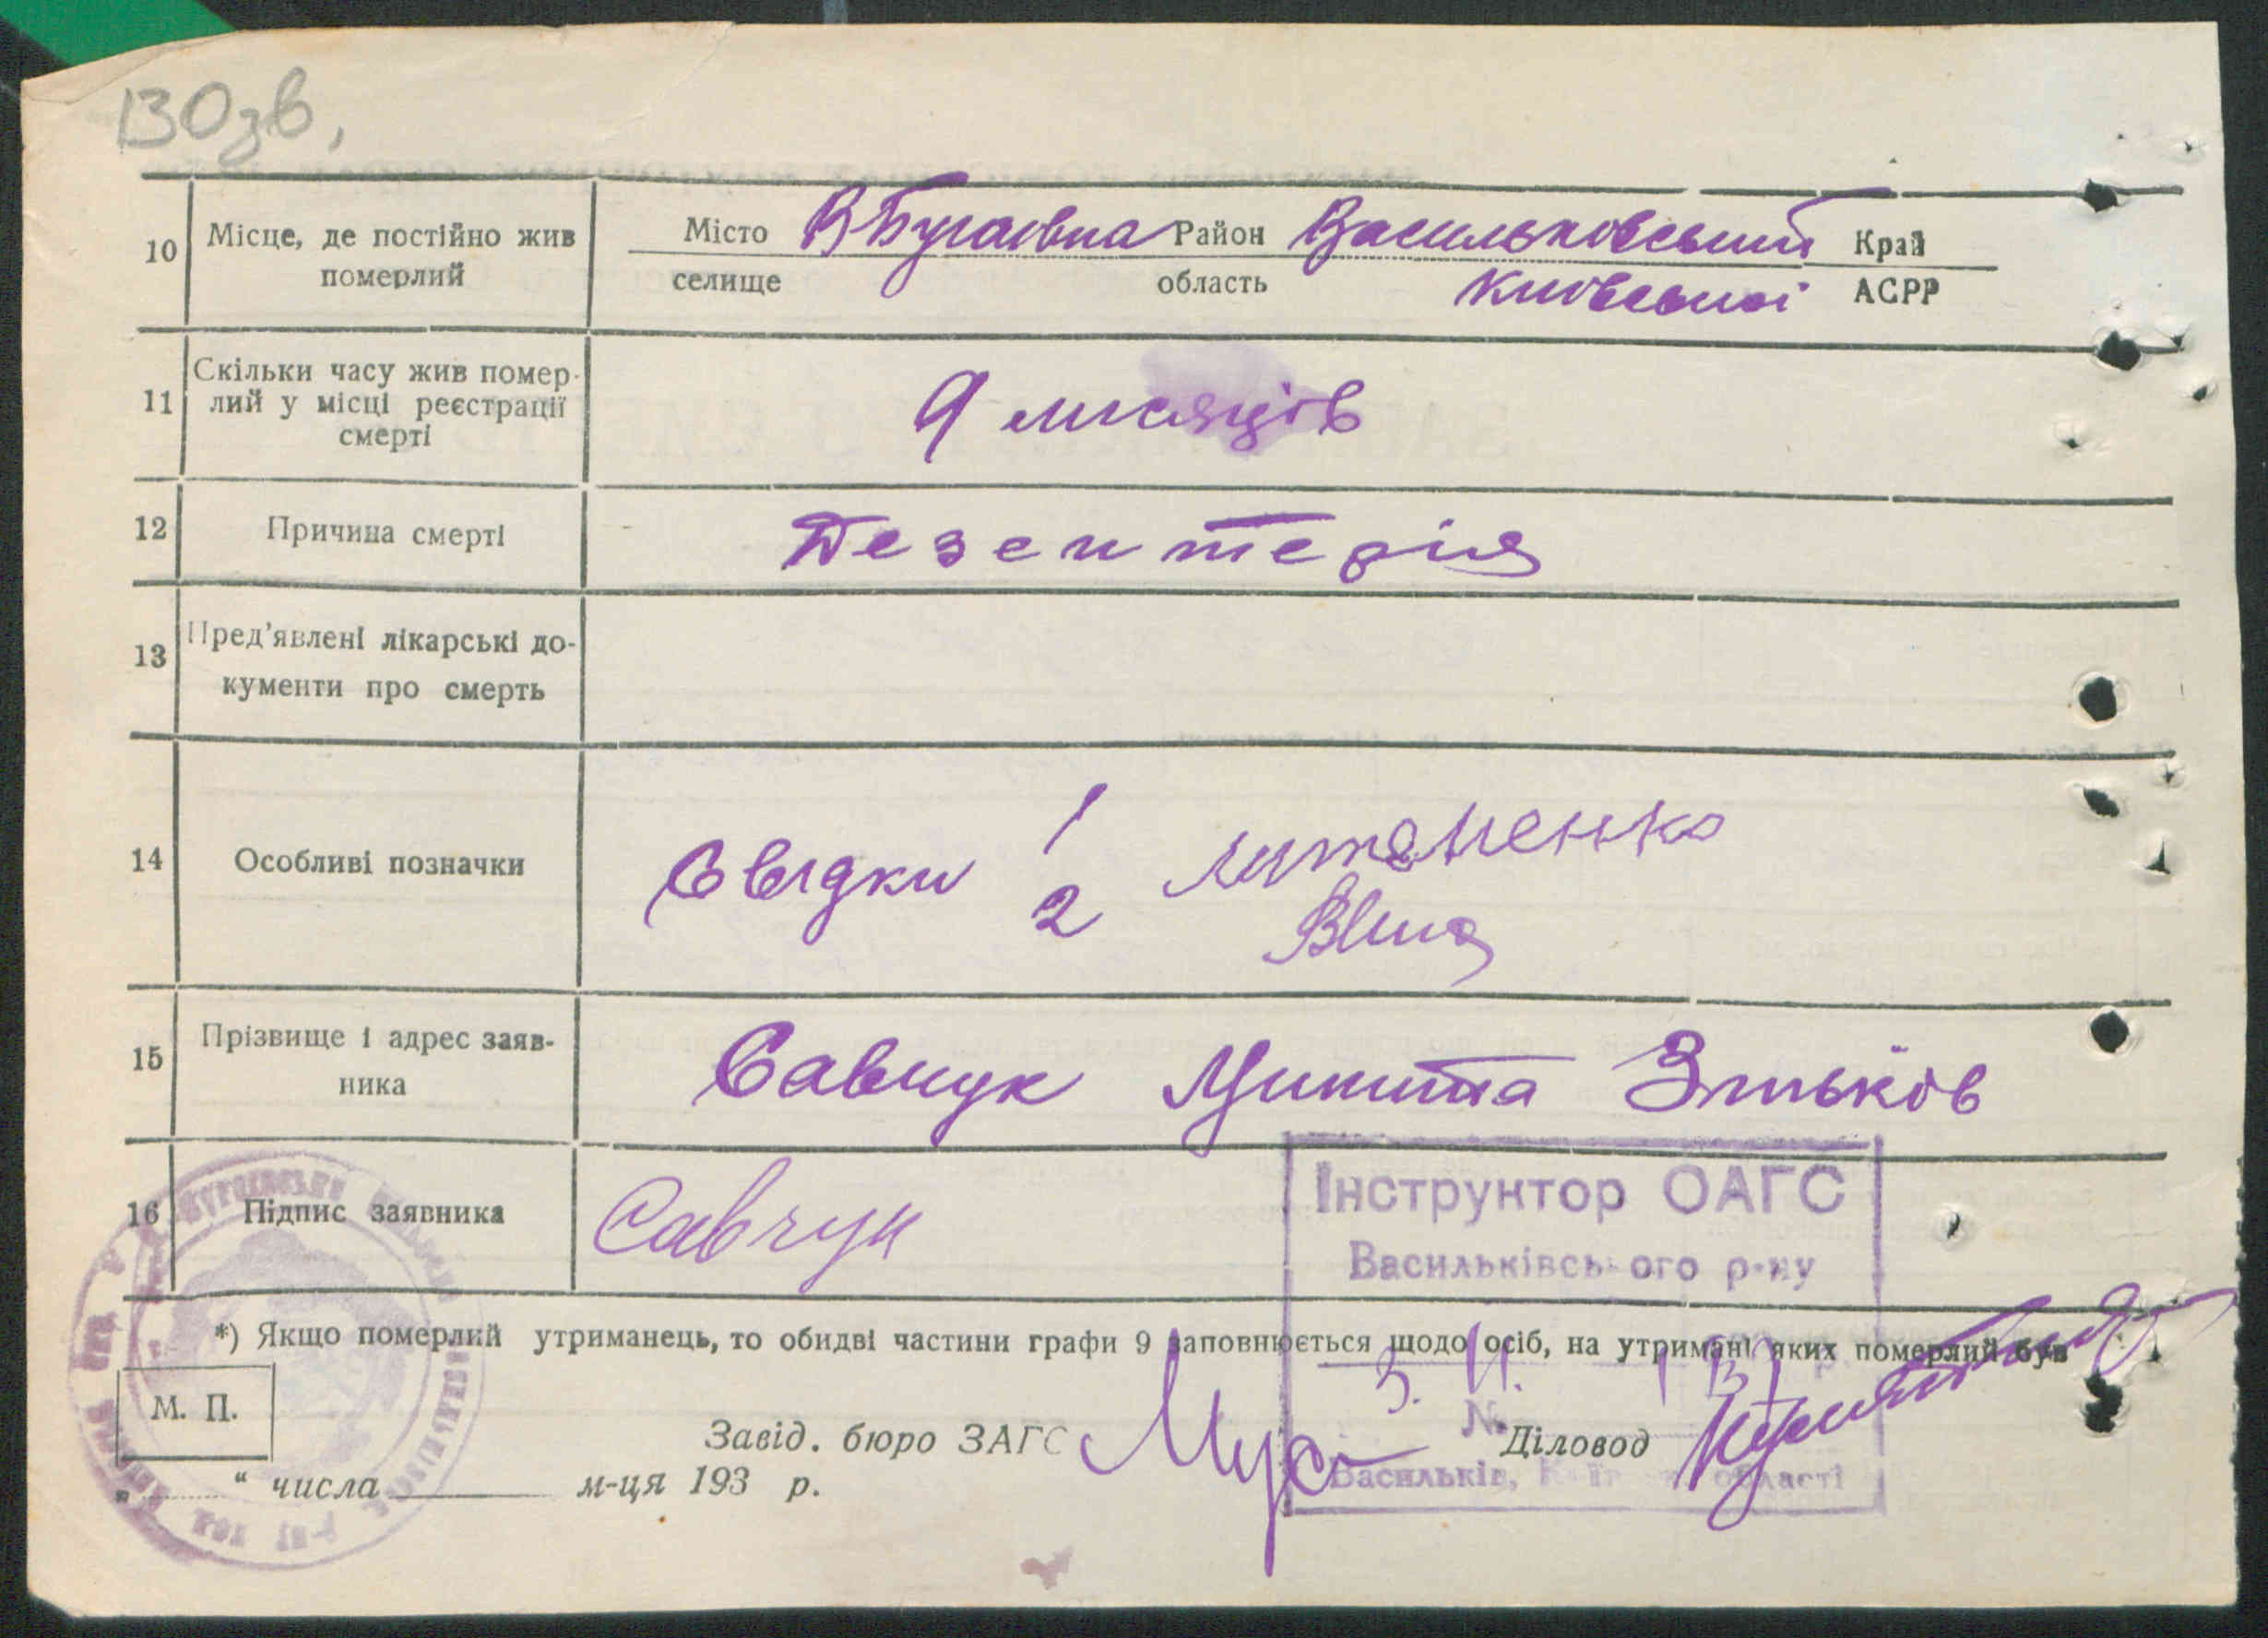 130зв,
10 Місце, де постійно жив померлий
Місто В Бугаєвка Район Васильковський Край
селище область Київської АСРР
11 Скільки часу жив помер-
лий у місці реєстрації
смерті
9 мисяців
12 Причина смерті Дезентерія
13 Пред'явлені лікарські до-
кументи про смерть
14 Особливі позначки
Свидки 1 Литвиненко
2
15 Прізвище і адрес заяв-
ника
Савчук Микита Зіньков
16 Підпис заявника Савчук
Інструктор ОАГС
Васильківського р-ну
*) Якщо померлий утриманець, то обидві частини графи 9 заповнюється щодо осіб, на утримані яких померлий був
№
М. П.
Завід. бюро ЗАГС Діловод
Васильків, Київської області
„ “ числа м-ця 193 р.